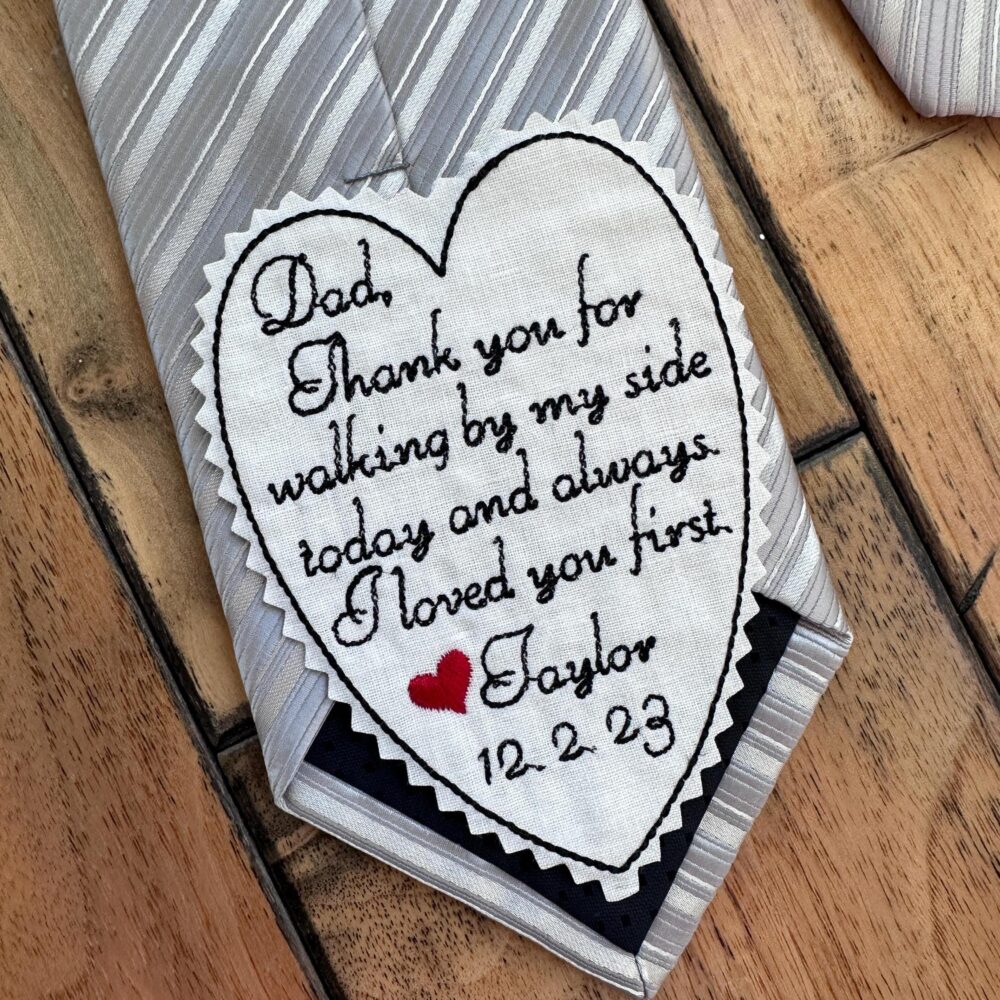 Dad,
Thank you for
walking by my side
today and always.
I loved you first.
Taylor
12. 2. 23